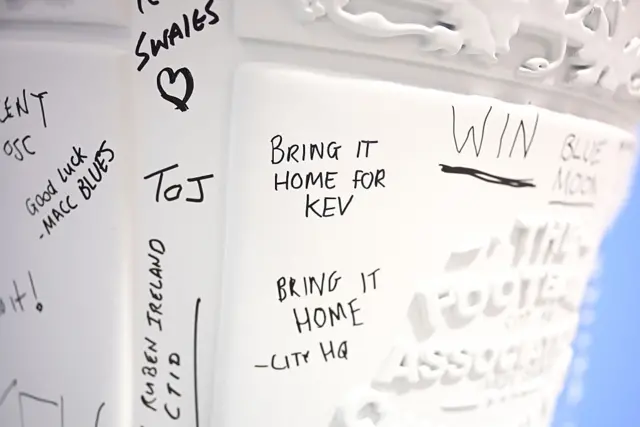 SWALES
TOJ
GOOD LUCK
-MACC BLUES
RUBEN IRELAND
CTID
BRING IT
HOME FOR
KEV
BRING IT
HOME
-CITY HQ
WIN
BLUE
MOON
THE
FOOTBALL
ASSOCIATION